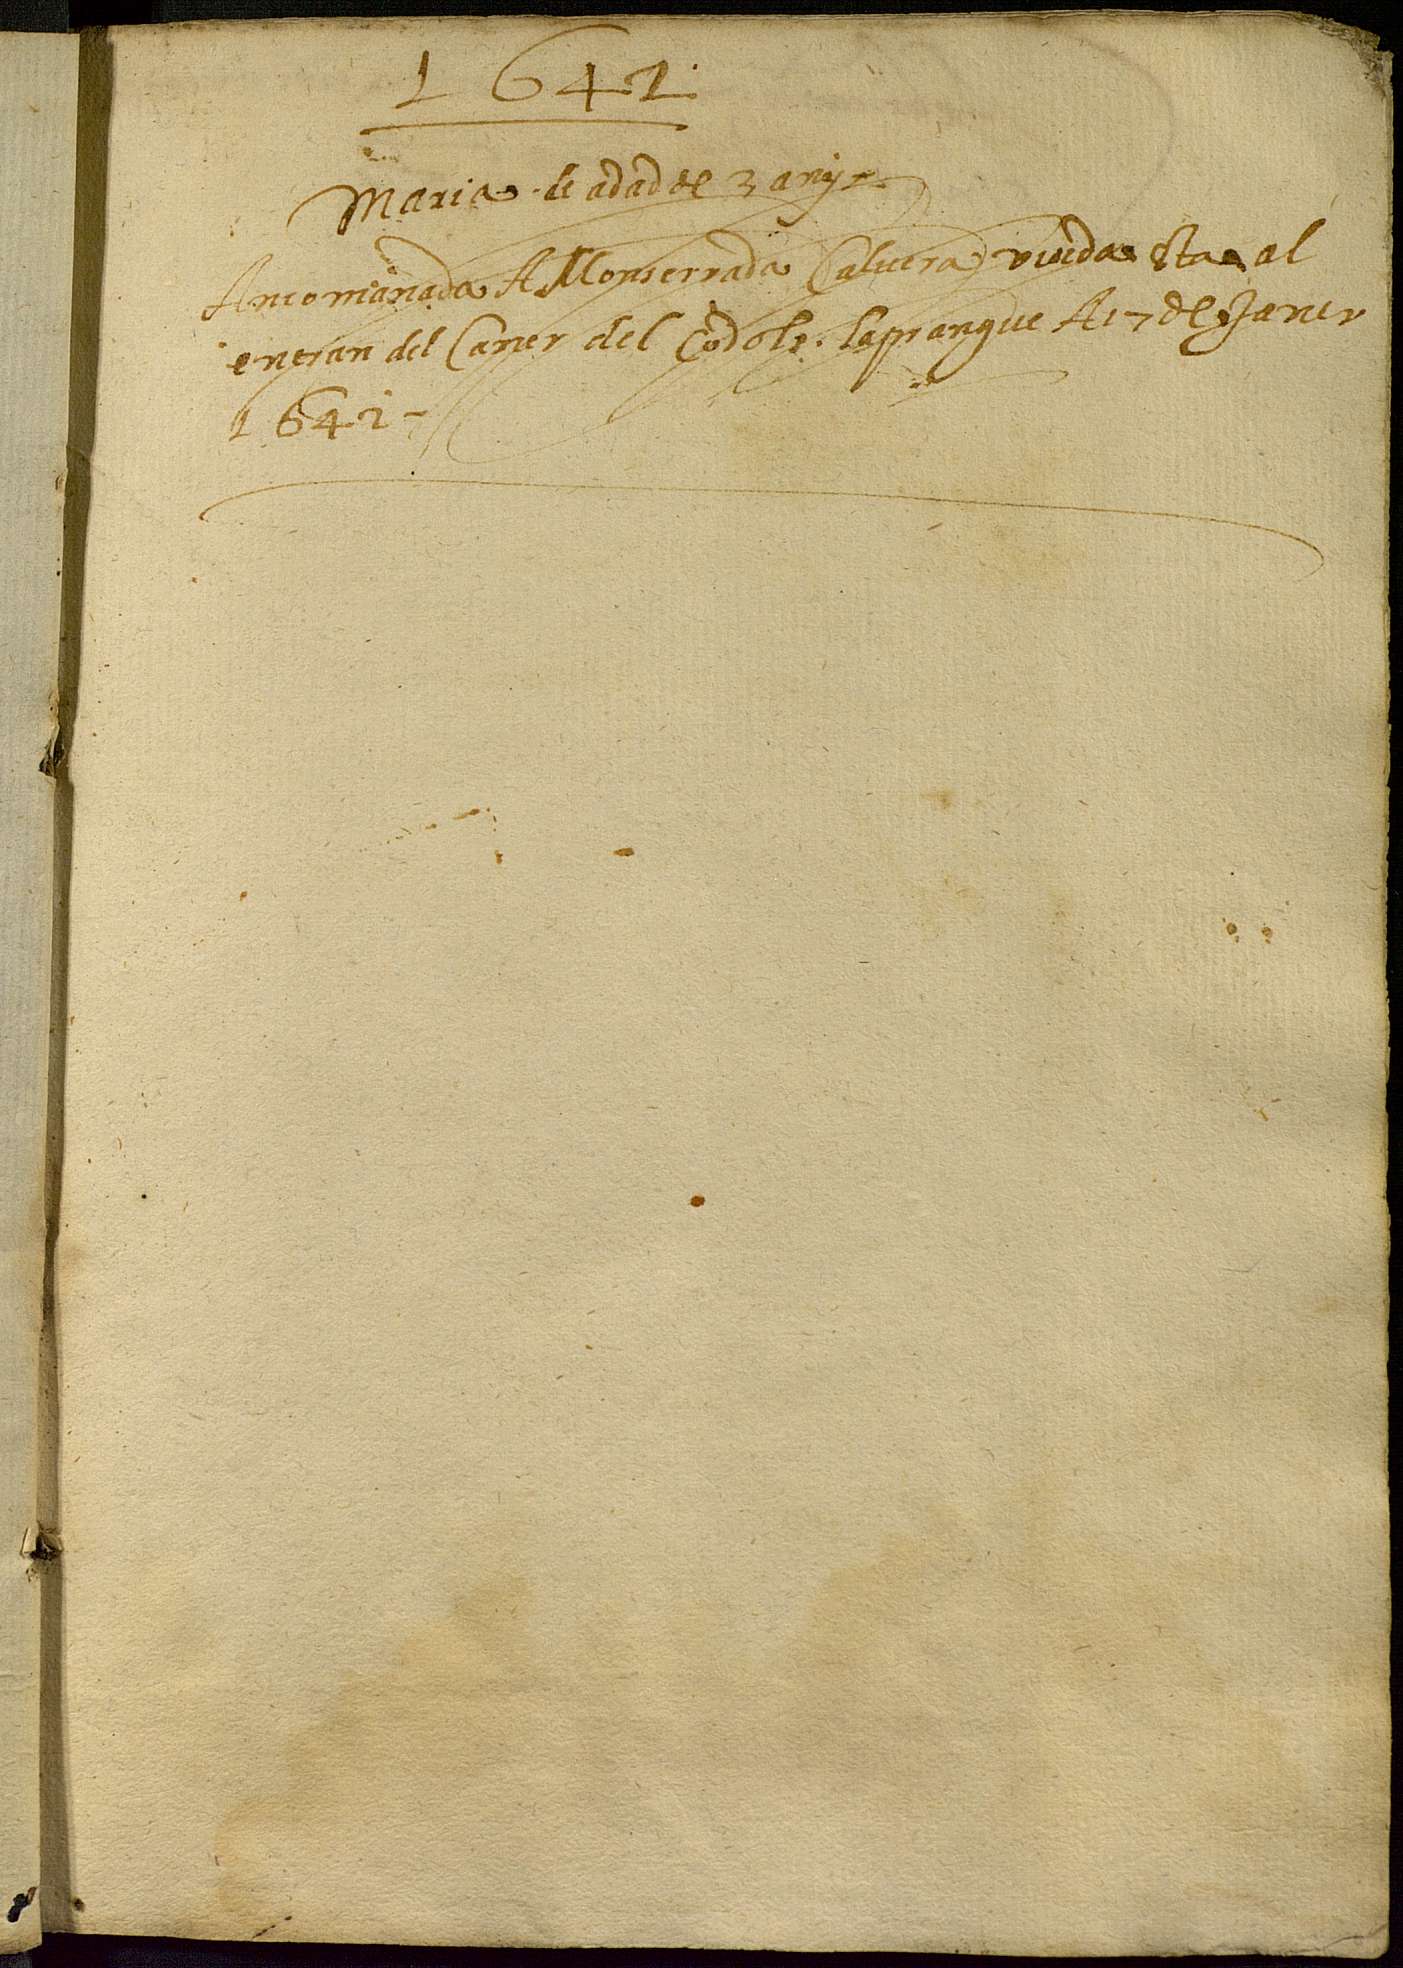 1642
Maria de adad de 3 anÿs
Ancomanada A Monserrada Caluera viuda sta al
entran del Carrer del Codols la pranque A 17 de Janer
1642